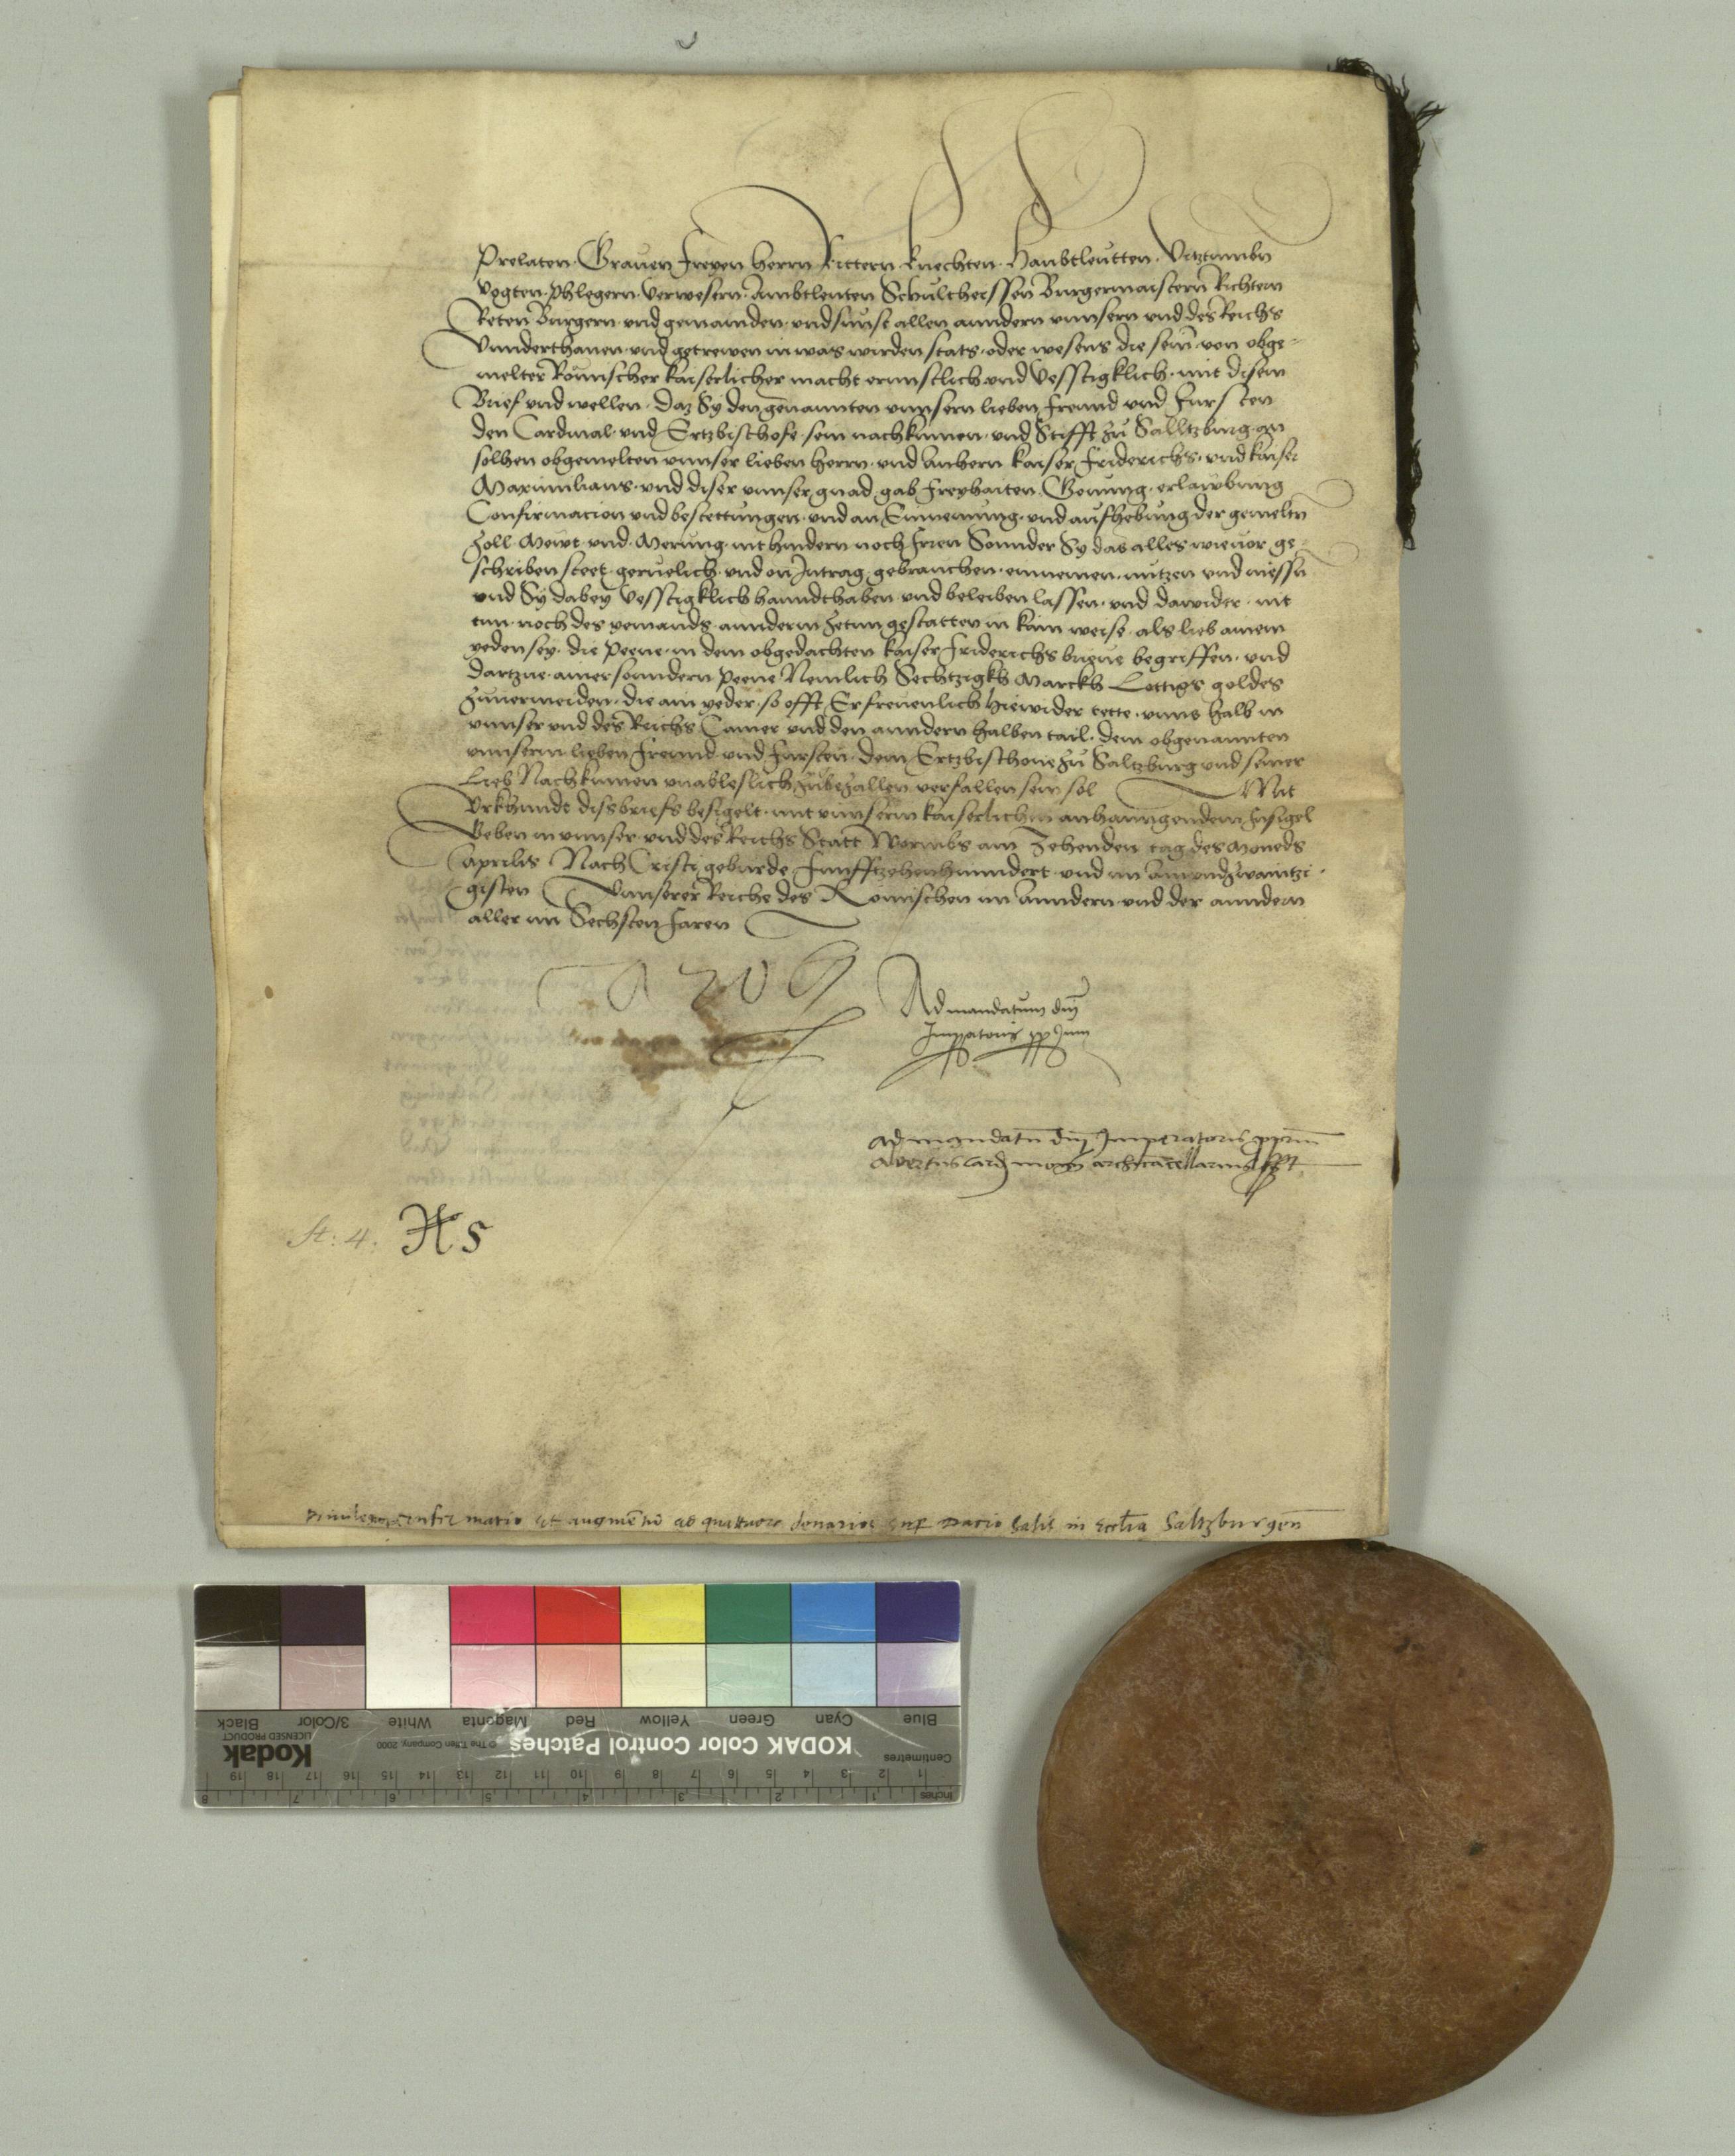 Prelaten. Grauen freyen herrn Rittern knechten. Haubtleutten. Vitztumbn
Vogten. phlegern. verwesern. Ambtleuten Schultheissen Burgermaistern Richtern
Reten Burgern. vnd gemainden. vnd sunst allen anndern vnnsern vnd des Reichs
Vnnderthanen. vnd getrewen in was wirden stats. oder wesens die sein. von obge-
melter Romischer kaiserlicher macht ernnstlich vnd Vesstigklich. mit disem
Brief vnd wellen. Daz Sy den genannten vnnsern lieben freund vnd Fürsten
den Cardinal. vnd Ertzbischofe. sein nachkumen. vnd Stifft zu Salltzburg. an
solhen obgemelten vnnser lieben herrn. vnd Anhern kaiser friderichs. vnd kaiser
Maximilians. vnd diser vnnser gnad. gab. freyhaiten. Gonung. erlawbung
Confirmacion vnd bestettungen. vnd an Einnemung. vnd aufhebung der gemeltn
Zoll. Mewt. vnd. Merung. nit hindern noch Irren Sonnder Sy das alles wie uor ge-
schriben steet. geruelich. vnd on Intrag. gebrauchen. einnemen. nutzen vnd niessn
vnd Sy dabey Vesstigklich hanndthaben vnd beleiben lassen. vnd dawider. nit
tun. noch des yemands. annderm zetun gestatten in kain weise. als lieb ainem
yeden sey. die peene. in dem obgedachten kaiser friderichs brieue begriffen. vnd
dartzue. ainer sonndern peene Nemlich Sechtzigkh Marckh Lottigs goldes
zuuermeiden. die ain yeder. so offt Er freuenlich hiewider tette. vnns halb in
vnnser vnd des Reichs Camer vnd den anndern halben tail. dem obgenannten
vnnserm lieben freund. vnd fürsten. dem Ertzbischoue zu Saltzburg vnd seiner
Lieb Nachkumen vnableslich zubezallen verfallen sein sol Mit
Vrkhundt diss briefs besigelt. mit vnnserm kaiserlichem anhanngendem Insigel
Geben in vnnser. vnd des Reichs Statt Wormbs am Zehenden tag des Moneds
Aprilis Nach Cristi geburde Funffzehenhunndert. vnd im Ainundzwaintzi-
gisten Vnnserer Reiche des Romischen im Anndern. vnd der anndern
aller im Sechsten Jaren
Ad mandatum dnj
Imperatoris pprium
ad mandatu dnj Imperatoris pprium
Albertus card mogun archicancellarius sspt
St: 4. 5
confirmatio et augmentu ad quattuor denarios sup dacio salis in Ecclia Saltzburgen
KODAK Color Control Patches
Kodak
LICENSED PRODUCT
© The Tiffen Company, 2000
Blue Cyan Green Yellow Red Magenta White 3/Color Black
Centimetres
1 2 3 4 5 6 7 8 9 10 11 12 13 14 15 16 17 18 19
Inches
1 2 3 4 5 6 7 8